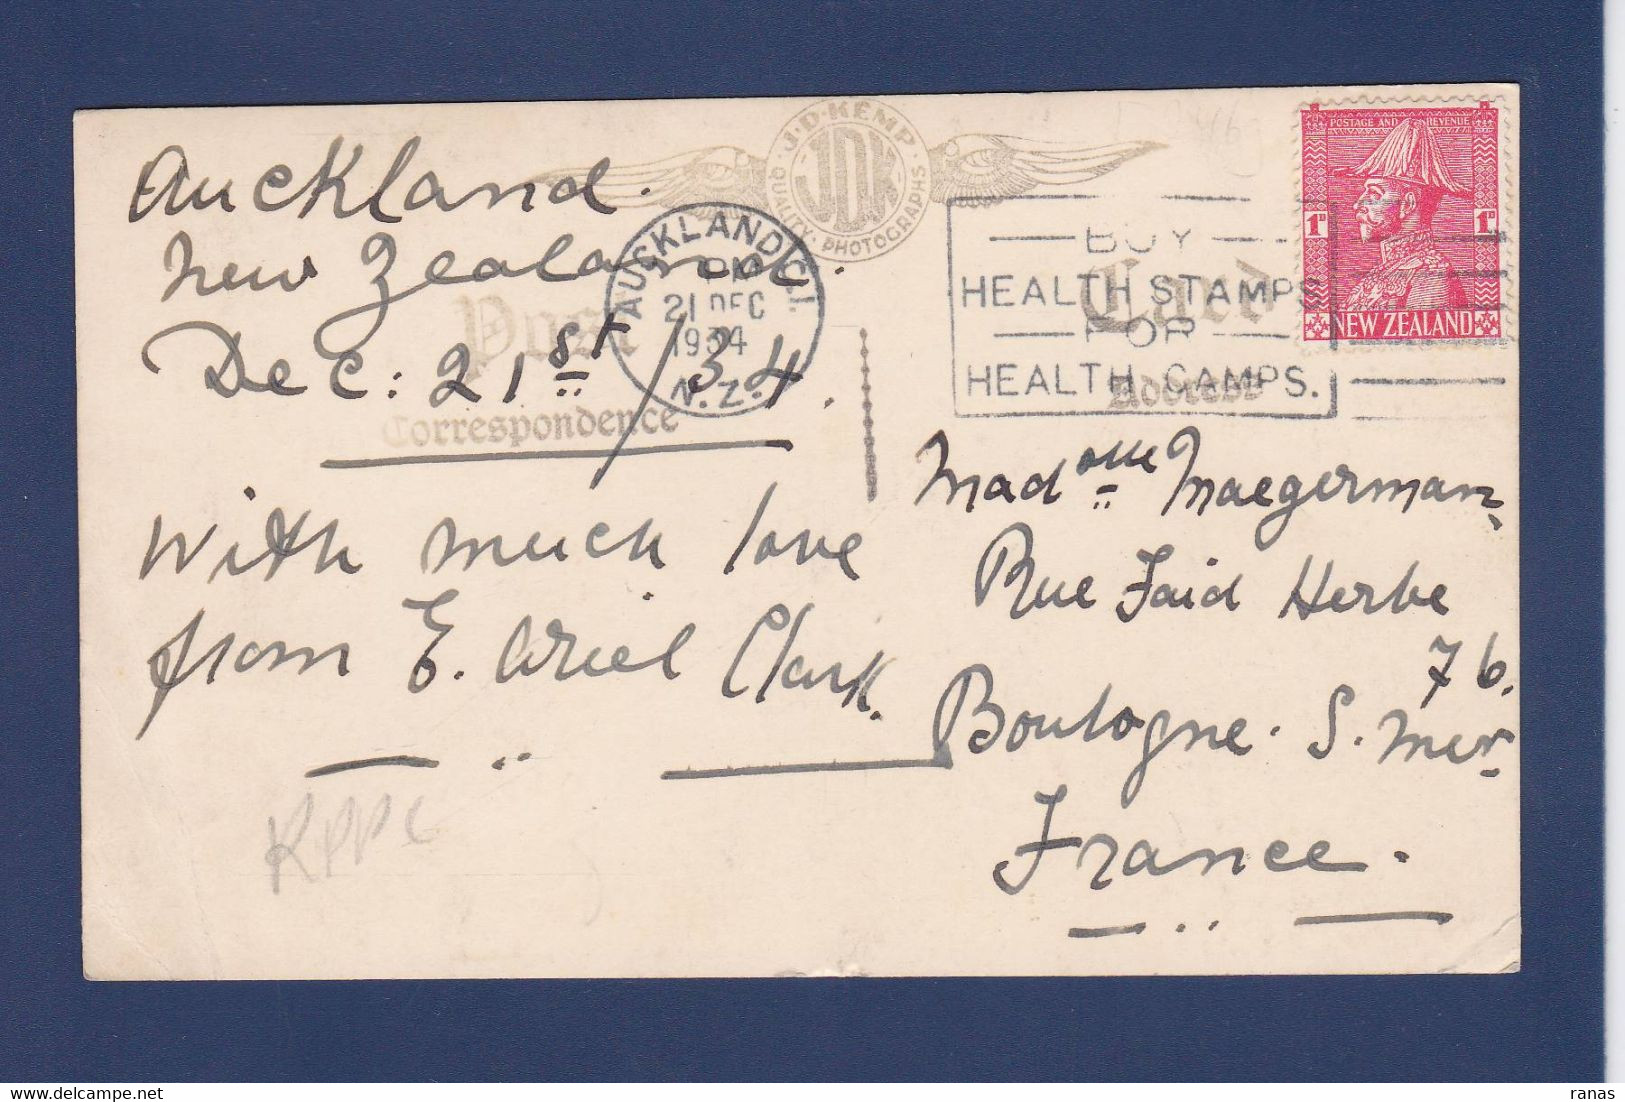 Auckland.
New Zealand.
Dec: 21st/34.
With much love
from E. Ariel Clark.
RPPC
Post Card
Correspondence
Address
J·D·KEMP
JDK
QUALITY·PHOTOGRAPHS
AUCKLAND C.1.
PM
21 DEC
1934
N.Z.
BUY
HEALTH STAMPS
FOR
HEALTH CAMPS.
POSTAGE AND REVENUE
1D 1D
NEW ZEALAND
Madelle Maegerman
Rue Faid Herbe
76.
Boulogne. S. Mer
France.
ranas